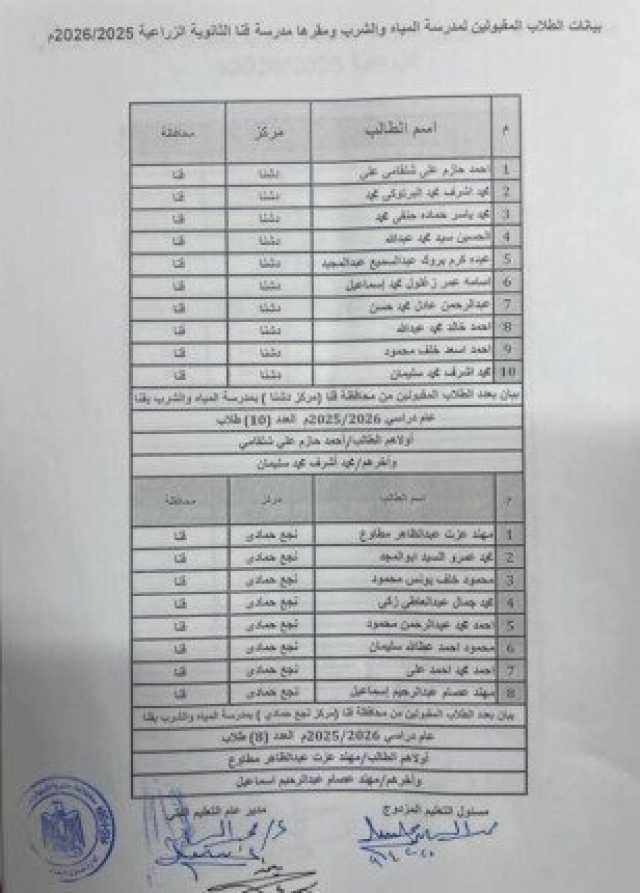 بيانات الطلاب المقبولين لمدرسة المياه والشرب ومقرها مدرسة قنا الثانوية الزراعية 2026/2025م
م اسم الطالب مركز محافظة
1 احمد حازم علي شلقامي علي دشنا قنا
2 محمد اشرف محمد البرنوكي محمد دشنا قنا
3 محمد ياسر حماده حنفي محمد دشنا قنا
4 الحسين سيد محمد عبدالله دشنا قنا
5 عبده كرم بروك عبدالسميع عبدالمجيد دشنا قنا
6 اسامه عمر زغلول محمد إسماعيل دشنا قنا
7 عبدالرحمن عادل محمد حسن دشنا قنا
8 احمد خالد محمد عبدالله دشنا قنا
9 احمد اسعد خلف محمود دشنا قنا
10 محمد اشرف محمد سليمان دشنا قنا
بيان بعدد الطلاب المقبولين من محافظة قنا (مركز دشنا ) بمدرسة المياه والشرب بقنا
عام دراسي 2025/2026م العدد (10) طلاب
أولاهم الطالب/أحمد حازم علي شلقامي
وأخرهم/محمد أشرف محمد سليمان
م اسم الطالب مركز محافظة
1 مهند عزت عبدالظاهر مطاوع نجع حمادى قنا
2 محمد عمرو السيد ابوالمجد نجع حمادى قنا
3 محمود خلف يونس محمود نجع حمادى قنا
4 محمد جمال عبدالعاطي زكي نجع حمادى قنا
5 احمد محمد عبدالرحمن محمود نجع حمادى قنا
6 محمود احمد عطالله سليمان نجع حمادى قنا
7 احمد محمد احمد على نجع حمادى قنا
8 مهند عصام عبدالرحيم إسماعيل نجع حمادى قنا
بيان بعدد الطلاب المقبولين من محافظة قنا (مركز نجع حمادي ) بمدرسة المياه والشرب بقنا
عام دراسي 2025/2026م العدد (8) طلاب
أولاهم الطالب/مهند عزت عبدالظاهر مطاوع
وأخرهم/مهند عصام عبدالرحيم اسماعيل
مسئول التعليم المزدوج
مدير عام التعليم الفني